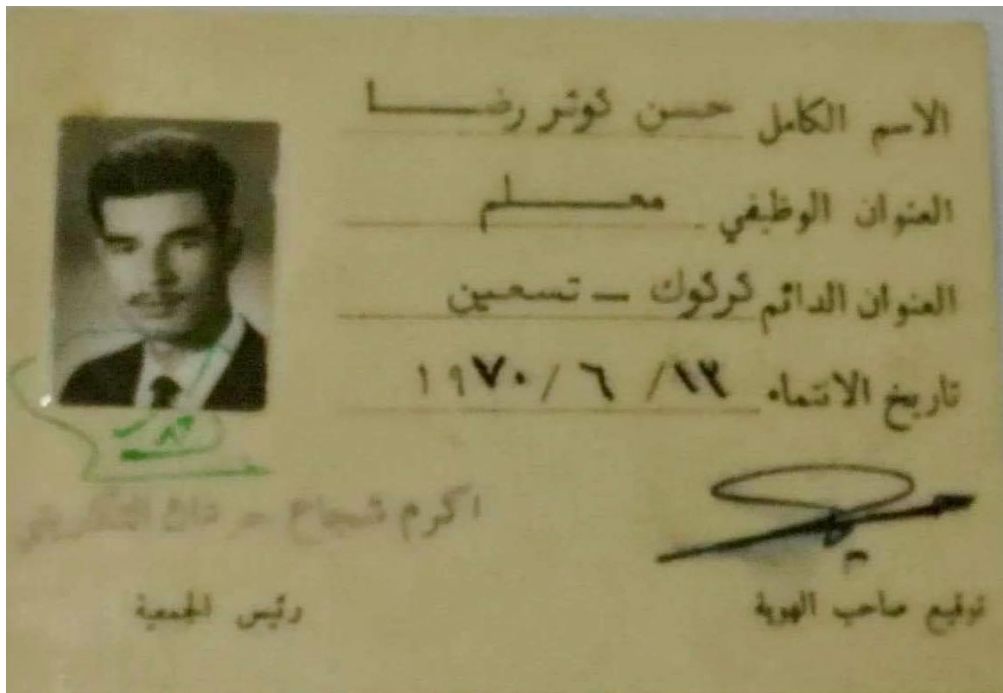 الاسم الكامل حسن كوثر رضا
العنوان الوظيفي معلم
العنوان الدائم كركوك - تسعين
تاريخ الانتماء ١٣ / ٦ / ١٩٧٠
اكرم شجاع التكريتي
رئيس الجمعية
توقيع صاحب الهوية